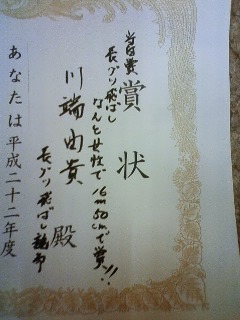 賞状
長グツ飛ばし
なんと女性で16m50cmで賞!!
川端由貴 殿
あなたは平成二十二年度
長グツ飛ばし